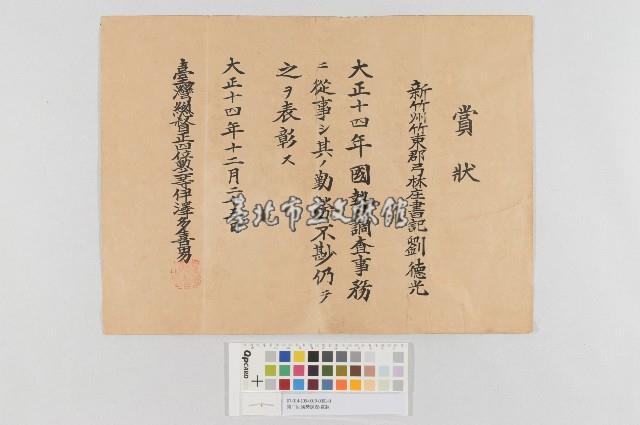 賞狀
新竹州竹東郡弓林庄書記劉德光
大正十四年國勢調査事務
ニ從事シ其ノ勤勞不尠仍テ
之ヲ表彰ス
大正十四年十二月二
臺灣總督正四位勲二等伊澤多喜男
臺北市立文獻館
QPCARD